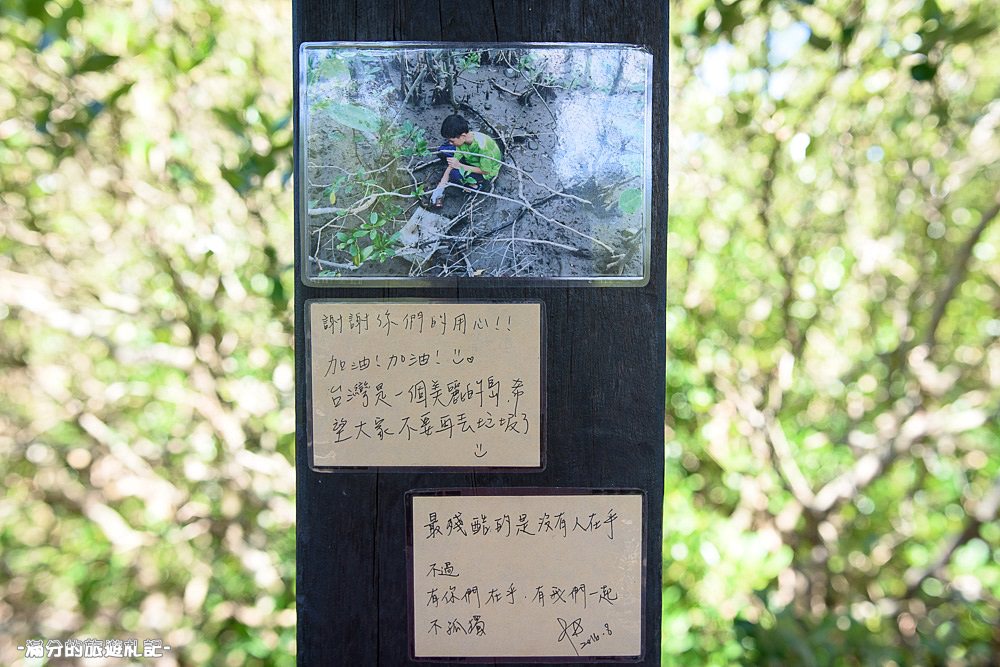 謝謝你們的用心!!
加油!加油!
台灣是一個美麗的島,希
望大家不要再丟垃圾了
最殘酷的是沒有人在乎
不過
有你們在乎.有我們一起
不孤獨
2016.8
-滿分的旅遊札記-